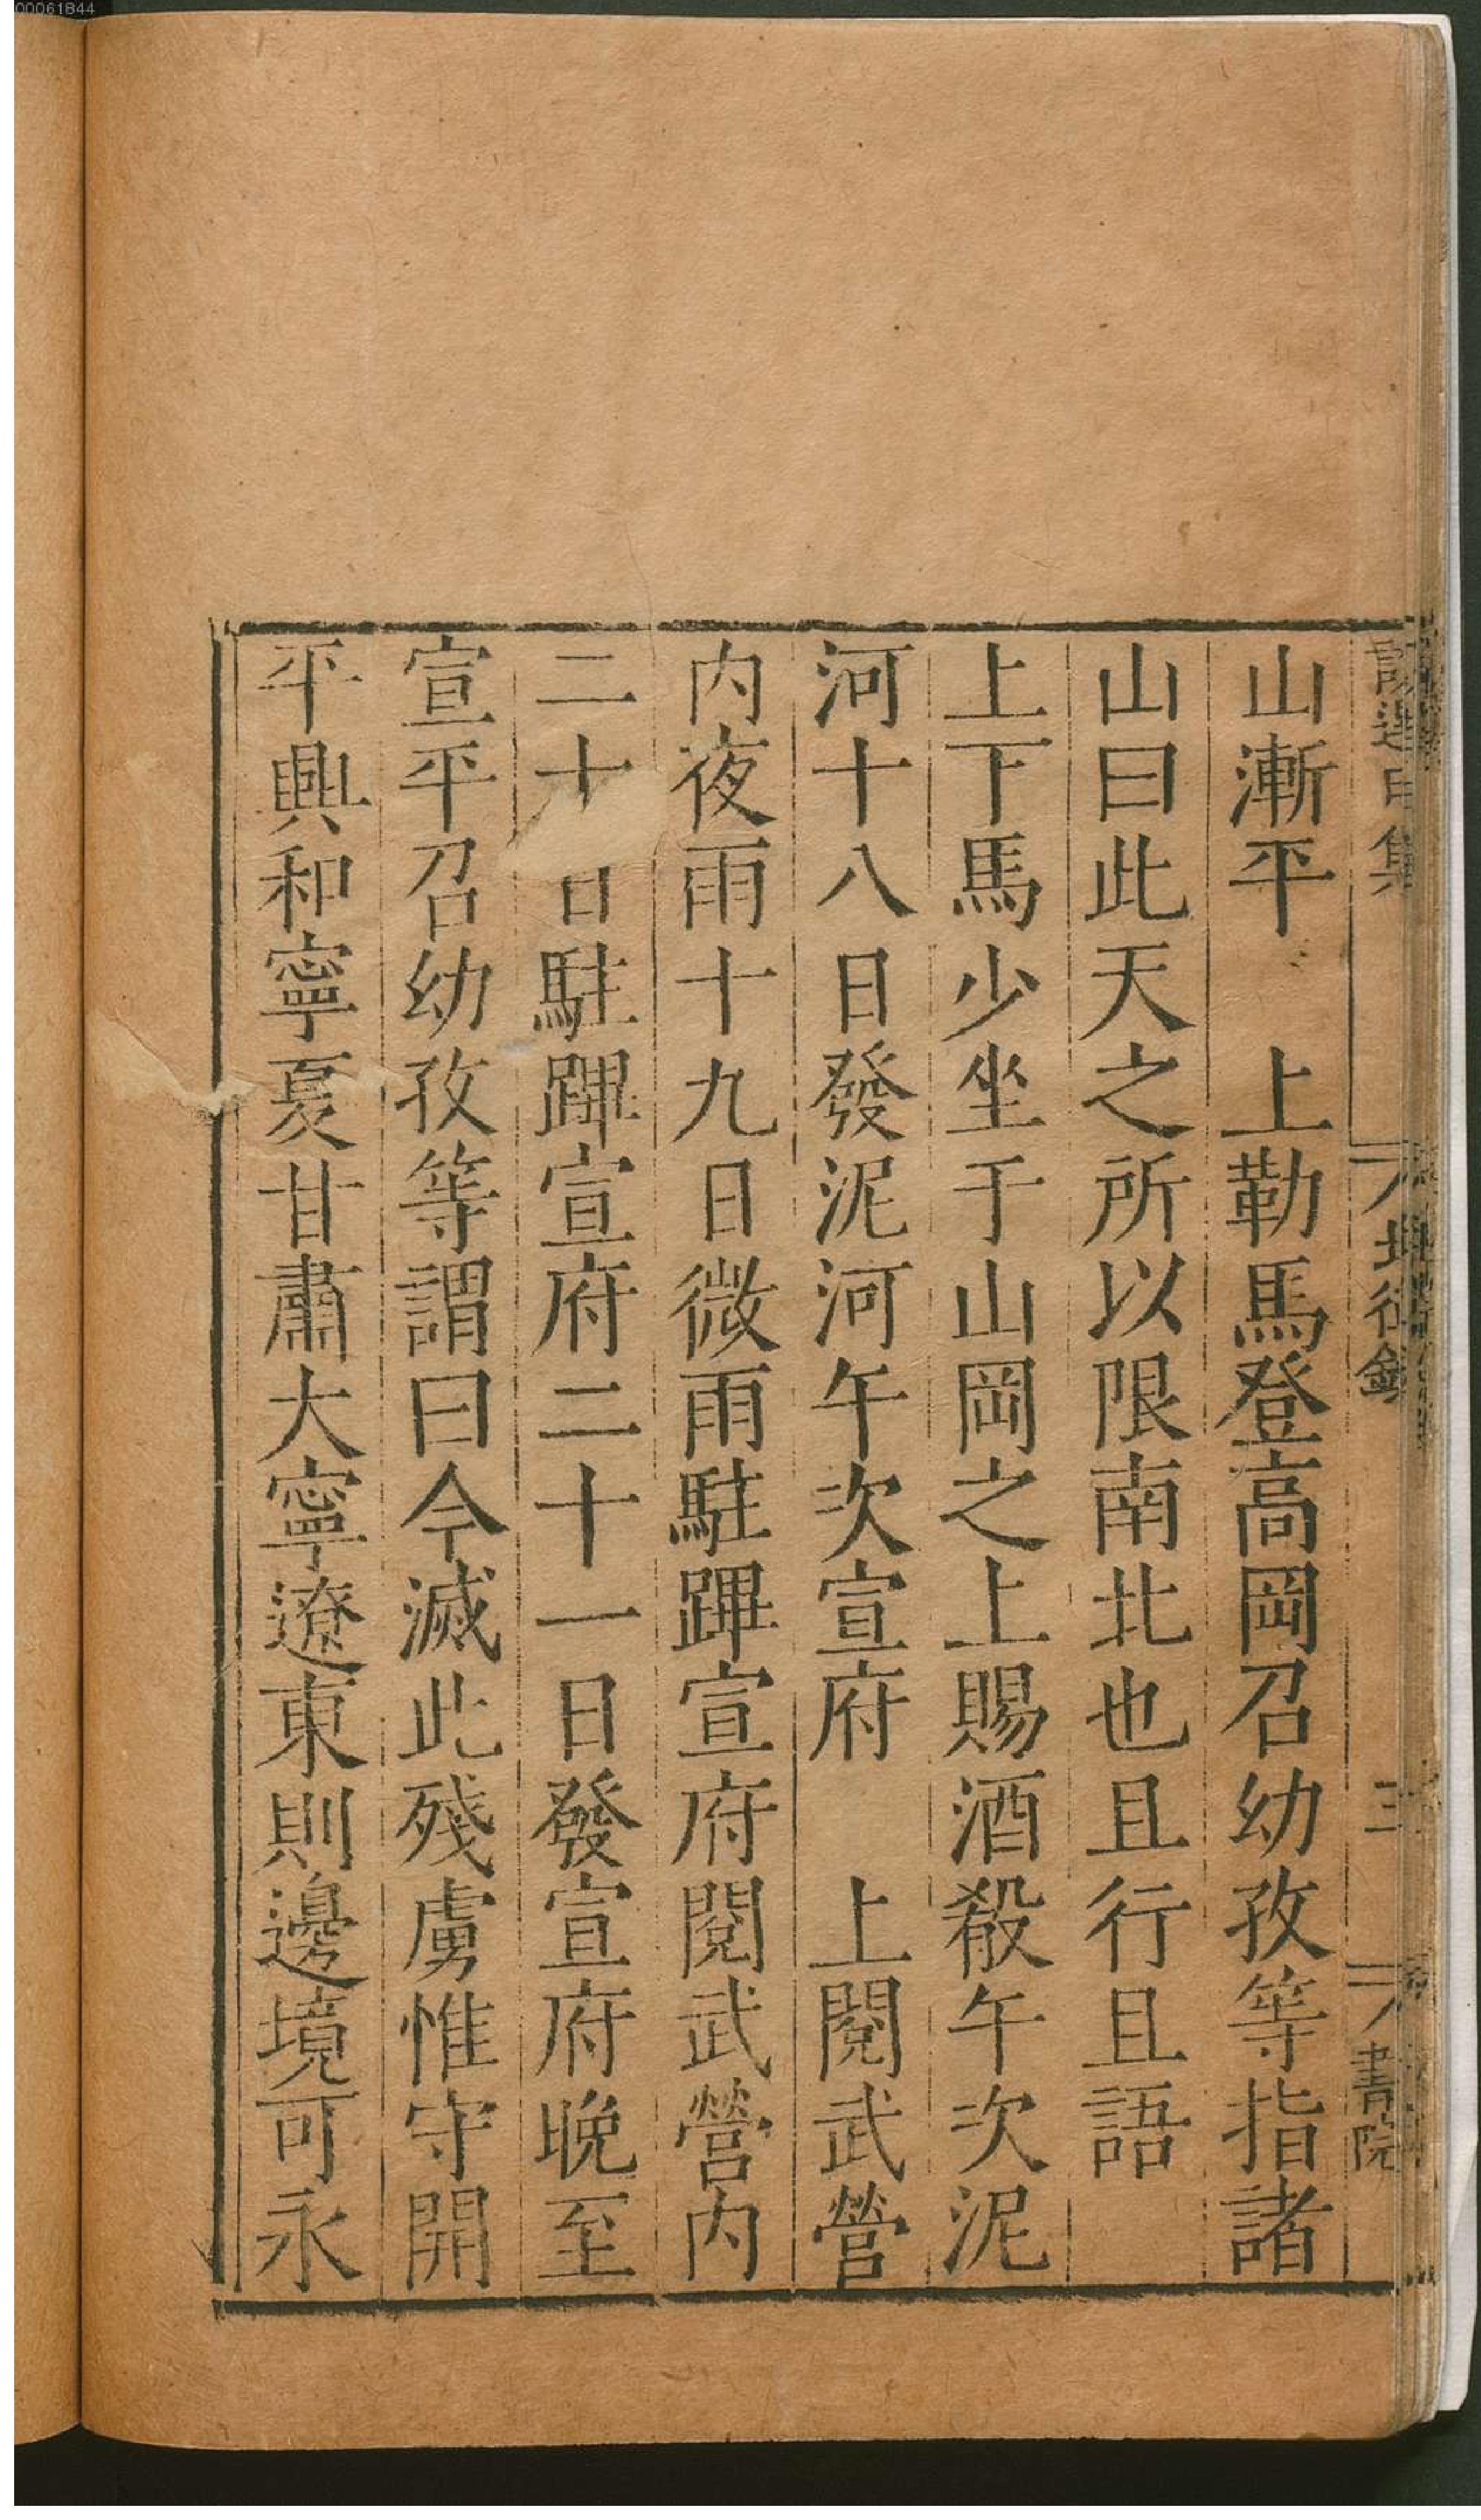 山漸平　上勒馬登高岡召幼孜等指諸
山曰此天之所以限南北也且行且語
上下馬少坐于山岡之上賜酒殽午次泥
河十八日發泥河午次宣府　上閱武營
内夜雨十九日微雨駐蹕宣府閱武營内
二十日駐蹕宣府二十一日發宣府晚至
宣平召幼孜等謂曰今滅此殘虜惟守開
平興和寧夏甘肅大寧遼東則邊境可永
北征錄
三
書院
00061844